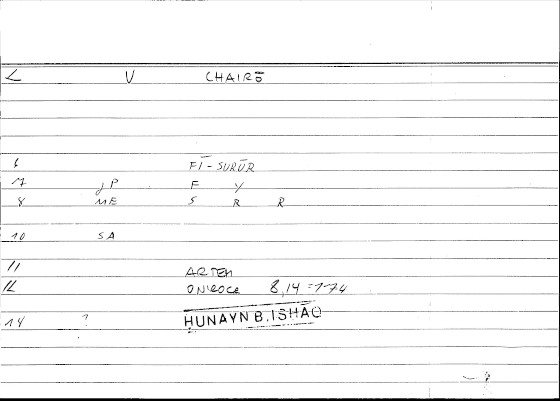 < V CHAIRŌ
6 FĪ-SURŪR
7 JP F Y
8 ME S R R
10 SA
11 ARTEM
12 ONIROCR 8,14 =
14 ? ḤUNAYN B. ISḤĀQ